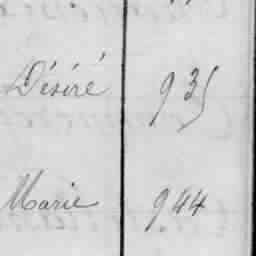 Désiré 935
Marie 944